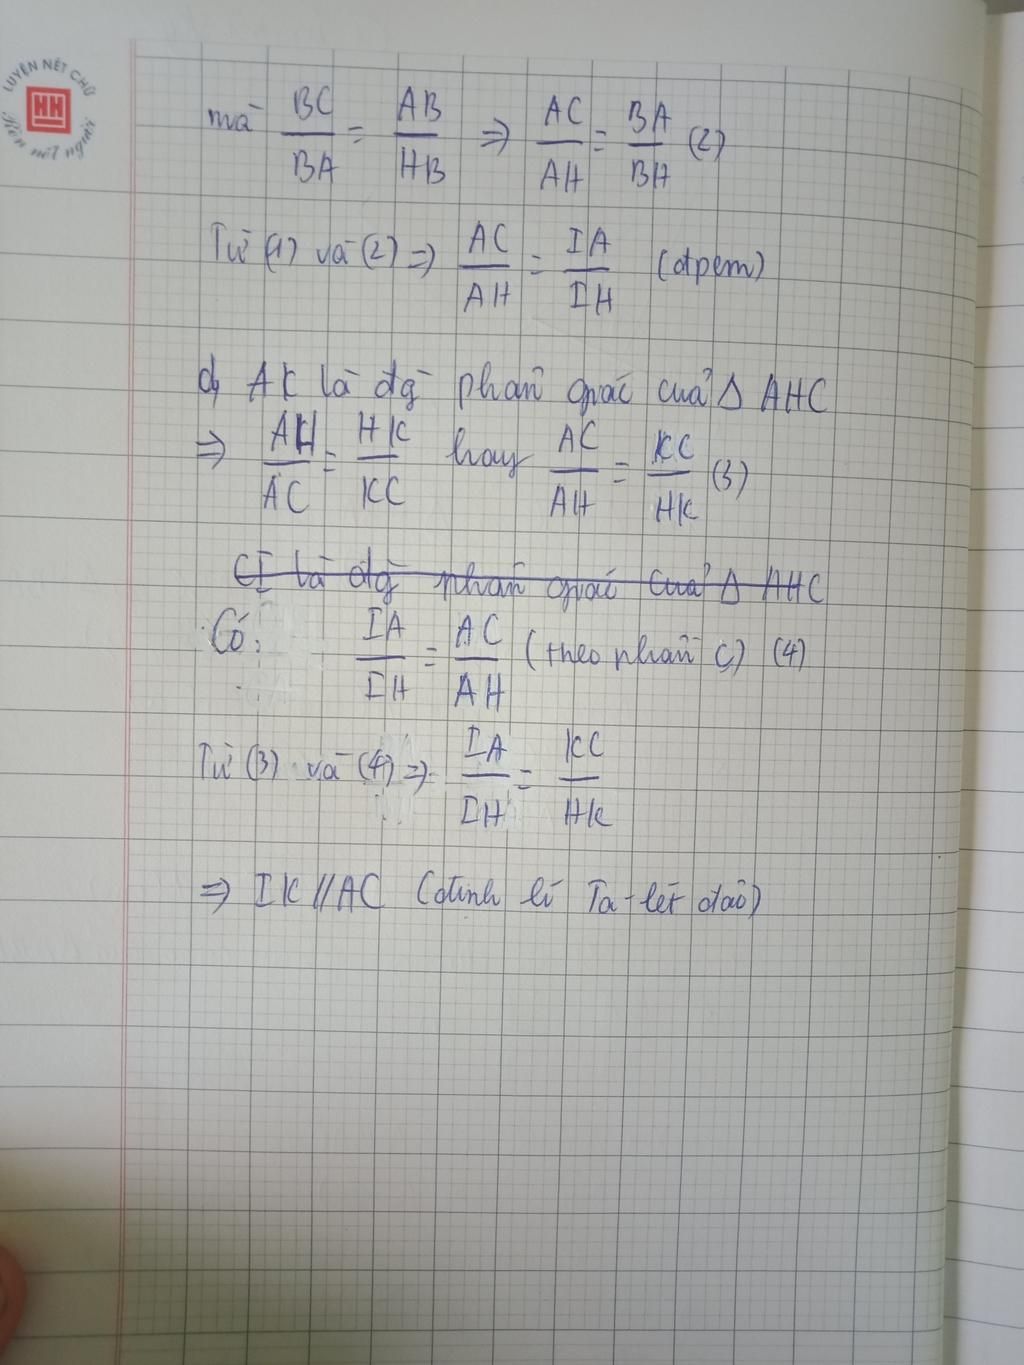 LUYỆN NÉT CHỮ
HH
Rèn nết người
mà BC/BA = AB/HB ⇒ AC/AH = BA/BH (2)
Từ (1) và (2) ⇒ AC/AH = IA/IH (đpcm)
d, AK là đg phân giác của Δ AHC
⇒ AH/AC = HK/KC hay AC/AH = KC/HK (3)
CI là đg phân giác của Δ AHC
Có: IA/IH = AC/AH (theo phần c) (4)
Từ (3) và (4) ⇒ IA/IH = KC/HK
⇒ IK // AC (định lí Ta-lét đảo)